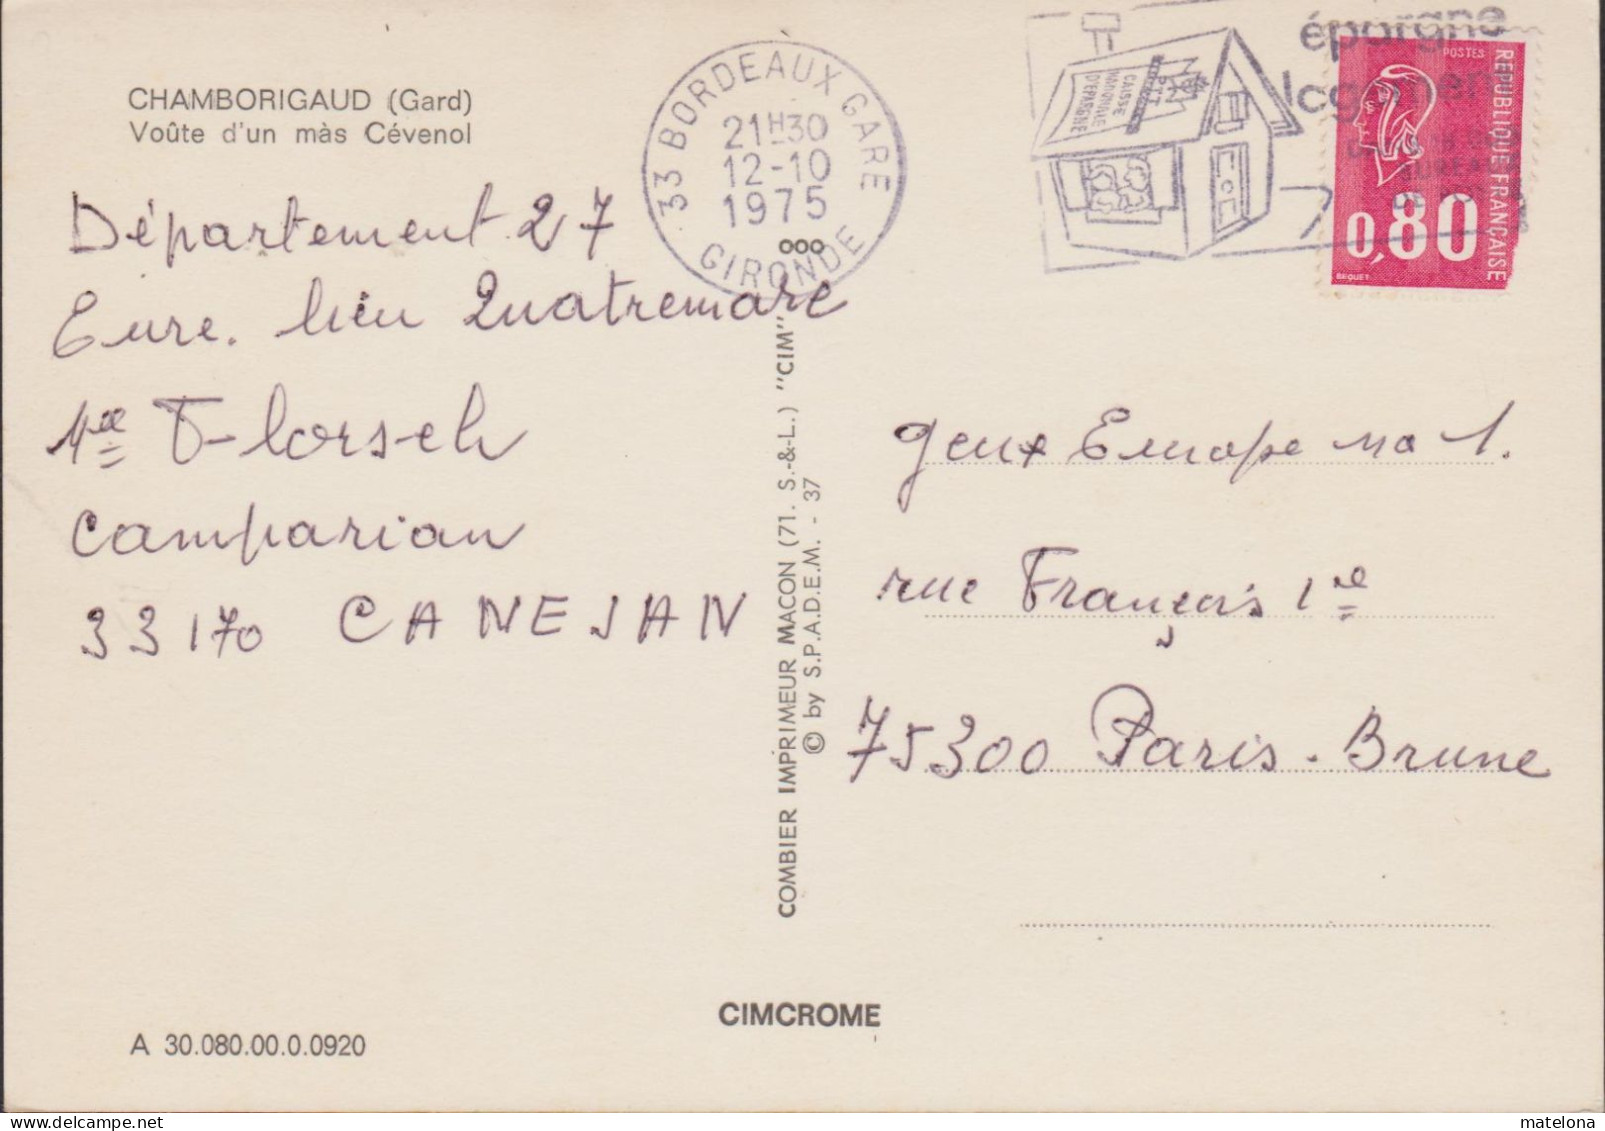 CHAMBORIGAUD (Gard)
Voûte d'un màs Cévenol
Département 27
Eure. lieu Quatremare
Camparian
33170 CANEJAN
33 BORDEAUX GARE
21H30
12-10
1975
GIRONDE
CAISSE
NATIONALE
D'EPARGNE
épargne
logement
POSTES
REPUBLIQUE FRANÇAISE
0,80
BEQUET
COMBIER IMPRIMEUR MACON (71. S.-&-L.) "CIM"
© by S.P.A.D.E.M. - 37
jeux Europe no 1.
rue François 1re
75300 Paris-Brune
CIMCROME
A 30.080.00.0.0920
matelona